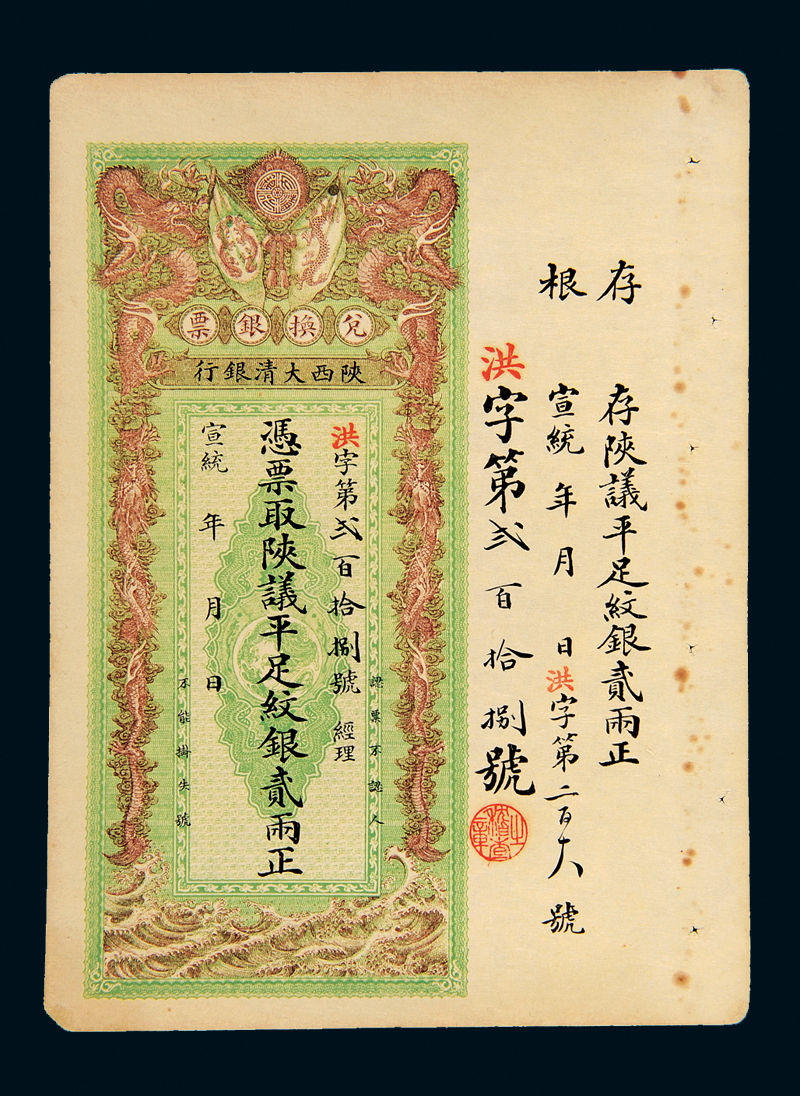 存根
存陝議平足紋銀貳兩正
宣統 年 月 日 洪字第二百十八號
洪字第弍百拾捌號
兌換銀票
陝西大清銀行
認票不認人
洪字第弍百拾捌號 經理
憑票取陝議平足紋銀貳兩正
宣統 年 月 日
不能掛失號